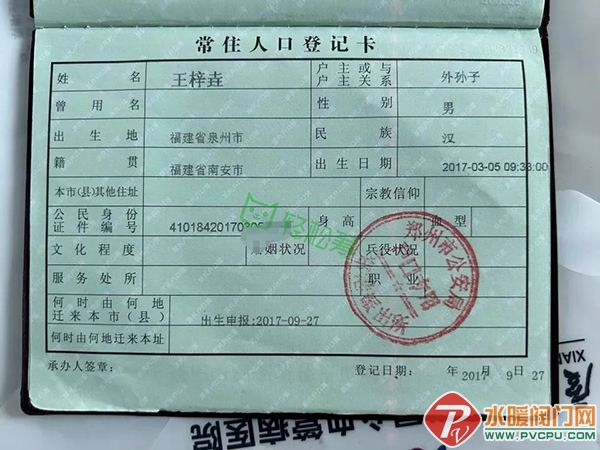 常住人口登记卡
姓 名 王梓垚 户主或与户主关系 外孙子
曾用名 性别 男
出生地 福建省泉州市 民族 汉
籍贯 福建省南安市 出生日期 2017-03-05 09:33:00
本市(县)其他住址 宗教信仰
公民身份证件编号 41018420170 身高 血型
文化程度 婚姻状况 兵役状况
服务处所 职业
何时由何地迁来本市(县) 出生申报:2017-09-27
何时由何地迁来本址
承办人签章: 登记日期: 年2017月9日27
轻松筹
郑州市公安局
血管病医院
XIA
水暖阀门网
WWW.PVCPU.COM